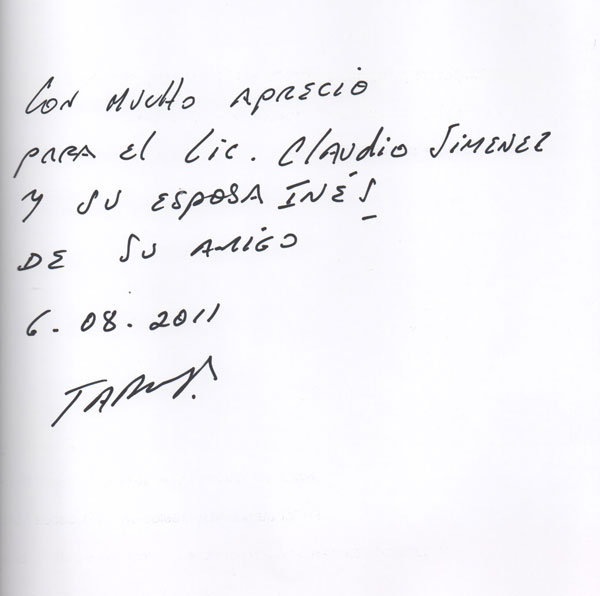 Con mucho aprecio
para el Lic. Claudio Jimenez
y su esposa Inés
de su amigo
6.08.2011